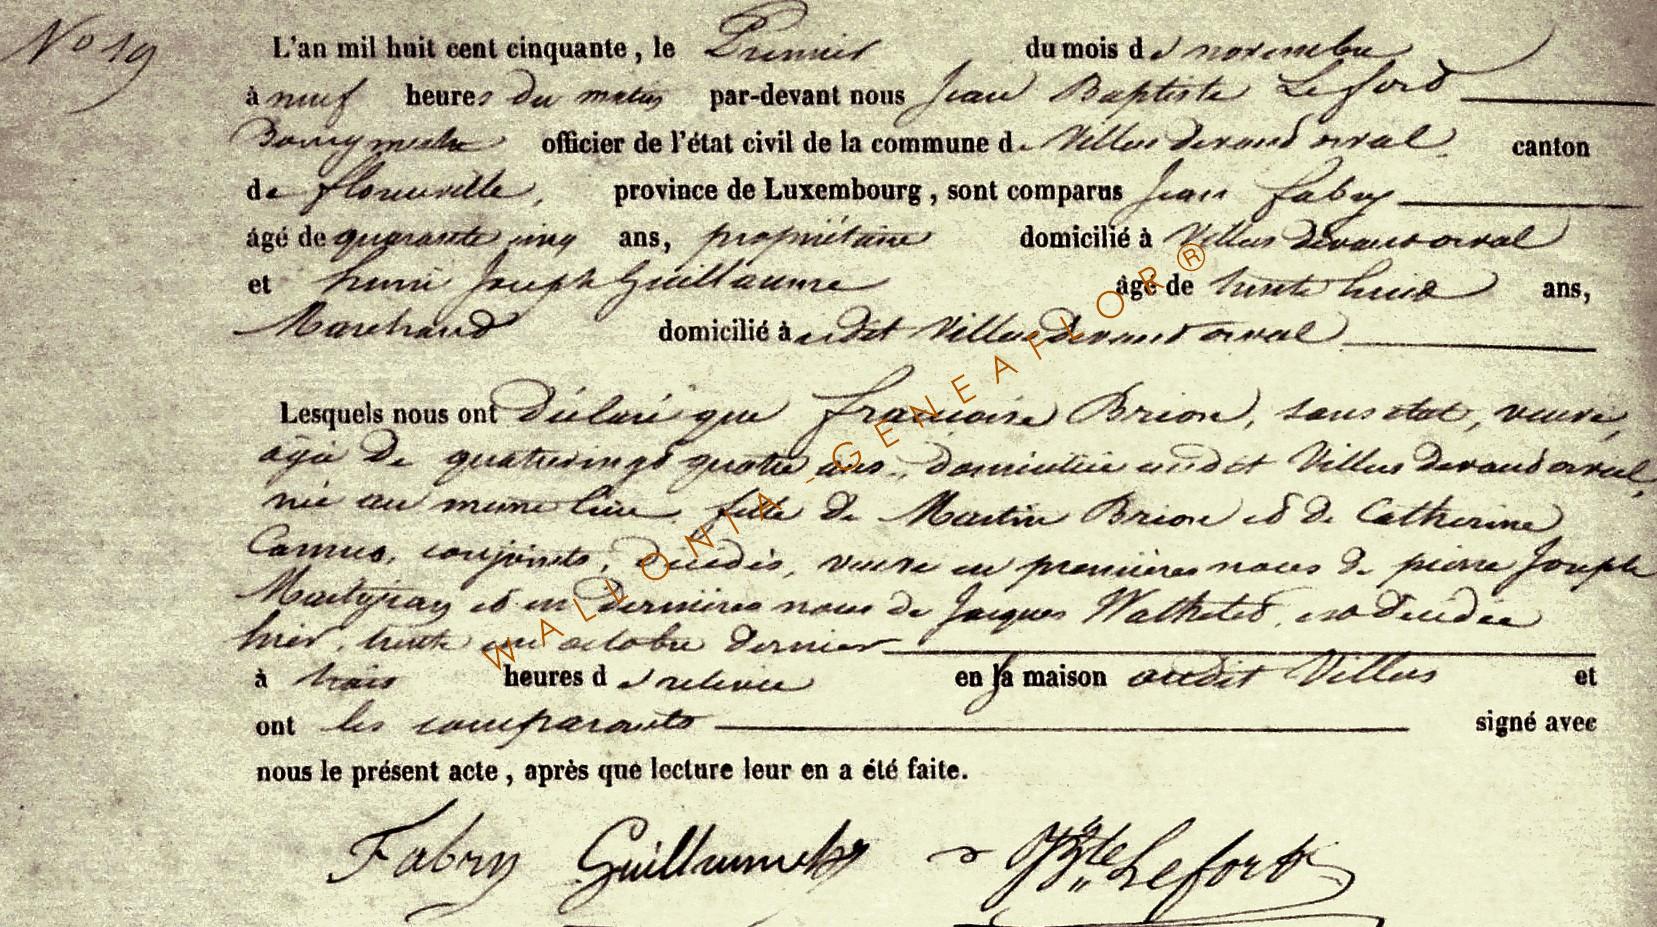 No 19
L'an mil huit cent cinquante, le Premier du mois de novembre
à neuf heures du matin par-devant nous Jean Baptiste Lefort
Bourgmestre officier de l'état civil de la commune de Villers devant orval canton
de florenville, province de Luxembourg, sont comparus Jean fabry
âgé de quarante cinq ans, propriétaire domicilié à Villers devant orval
et henri Joseph Guillaume âgé de trente huit ans,
Marchand domicilié à udit Villers devant orval
Lesquels nous ont déclaré que francoise Brion, sans état, veuve,
agée de quatrevingt quatre ans, domiciliée audit Villers devant orval,
née au meme lieu, fille de Martin Brion et de Catherine
Camus, conjoints, décédés, veuve en premières noces de pierre Joseph
et en dernières noces de Jacques Watheled, est décédée
hier, trente un octobre dernier
à trois heures de relevée en la maison audit Villers et
ont les comparants signé avec
nous le présent acte, après que lecture leur en a été faite.
Fabry Guillaume JBte Lefort
WALLONIA-GENEAFLOR®